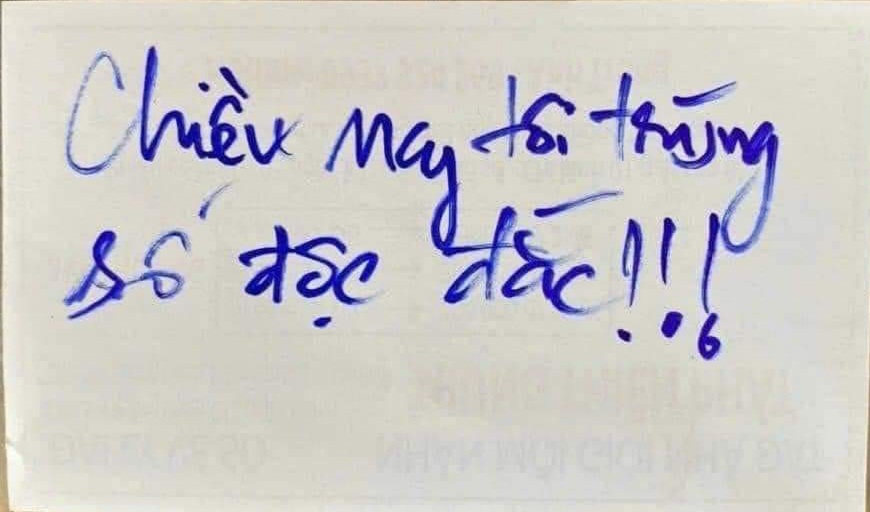 Chiều nay tôi trúng
số độc đắc!!!